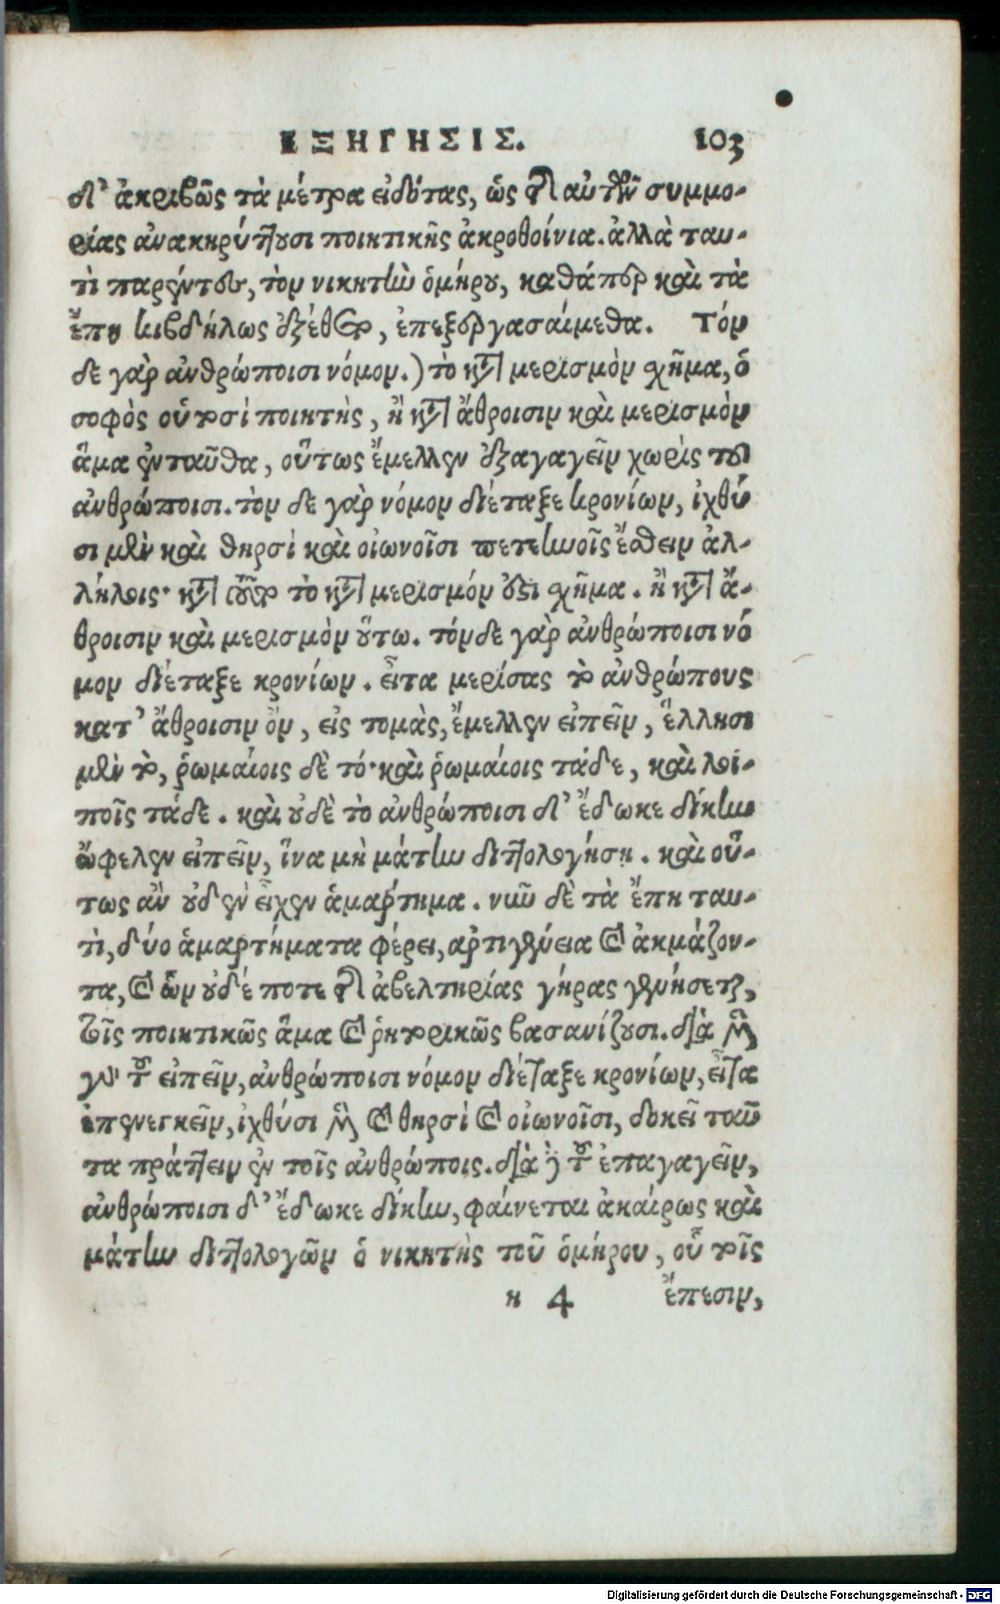 ΕΞΗΓΗΣΙΣ. 103
δι' ἀκριβῶς τὰ μέτρα εἰδότας, ὡς τῆς αὐτῶν συμμο-
ρίας ἀνακηρύττουσι ποιητικῆς ἀκροθοίνια. ἀλλὰ ταυ-
τὶ παρέντες, τὸν νικητὴν ὁμήρου, καθάπερ καὶ τὰ
ἔπη κιβδήλως ἐξέθετο, ἐπεξεργασαίμεθα. Τόν
δε γὰρ ἀνθρώποισι νόμον.) τὸ κατὰ μερισμὸν σχῆμα, ὁ
σοφὸς οὑτοσὶ ποιητὴς, ἢ κατὰ ἄθροισιν καὶ μερισμὸν
ἅμα ἐνταῦθα, οὕτως ἔμελλεν ἐξαγαγεῖν χωρὶς τοῦ
ἀνθρώποισι. τὸν δε γὰρ νόμον διέταξε κρονίων, ἰχθύ
σι μὲν καὶ θηρσὶ καὶ οἰωνοῖσι πετεινοῖς ἔσθειν ἀλ-
λήλοις· κατὰ τὸ κατὰ μερισμόν ἐστι σχῆμα. ἢ κατὰ ἄ-
θροισιν καὶ μερισμὸν οὕτω. τόνδε γὰρ ἀνθρώποισι νό
μον διέταξε κρονίων. εἶτα μερίσας τοὺς ἀνθρώπους
κατ' ἄθροισιν ὂν, εἰς τομὰς, ἔμελλεν εἰπεῖν, ἕλλησι
μὲν τὸ, ῥωμαίοις δὲ τό· καὶ ῥωμαίοις τάδε, καὶ λοι-
ποῖς τάδε. καὶ οὐδὲ τὸ ἀνθρώποισι δ' ἔδωκε δίκην
ὤφελεν εἰπεῖν, ἵνα μὴ μάτην διττολογήσῃ. καὶ οὕ-
τως ἂν οὐδὲν εἶχεν ἁμάρτημα. νῦν δὲ τὰ ἔπη ταυ-
τὶ, δύο ἁμαρτήματα φέρει, ἀρτιγένεια καὶ ἀκμάζον-
τα, καὶ ὧν οὐδέ ποτε τῆς ἀβελτηρίας γήρας γενήσεται,
τοῖς ποιητικῶς ἅμα καὶ ῥητορικῶς βασανίζουσι. διὰ μὲν
γὰρ τοῦ εἰπεῖν, ἀνθρώποισι νόμον διέταξε κρονίων, εἶτα
ἐπενεγκεῖν, ἰχθύσι μὲν καὶ θηρσὶ καὶ οἰωνοῖσι, δοκεῖ ταῦ
τα πράττειν ἐν τοῖς ἀνθρώποις. διὰ δὲ τοῦ ἐπαγαγεῖν,
ἀνθρώποισι δ' ἔδωκε δίκην, φαίνεται ἀκαίρως καὶ
μάτην διττολογῶν ὁ νικητὴς τοῦ ὁμήρου, οὗ τοῖς
η 4 ἔπεσιν,
Digitalisierung gefördert durch die Deutsche Forschungsgemeinschaft - DFG